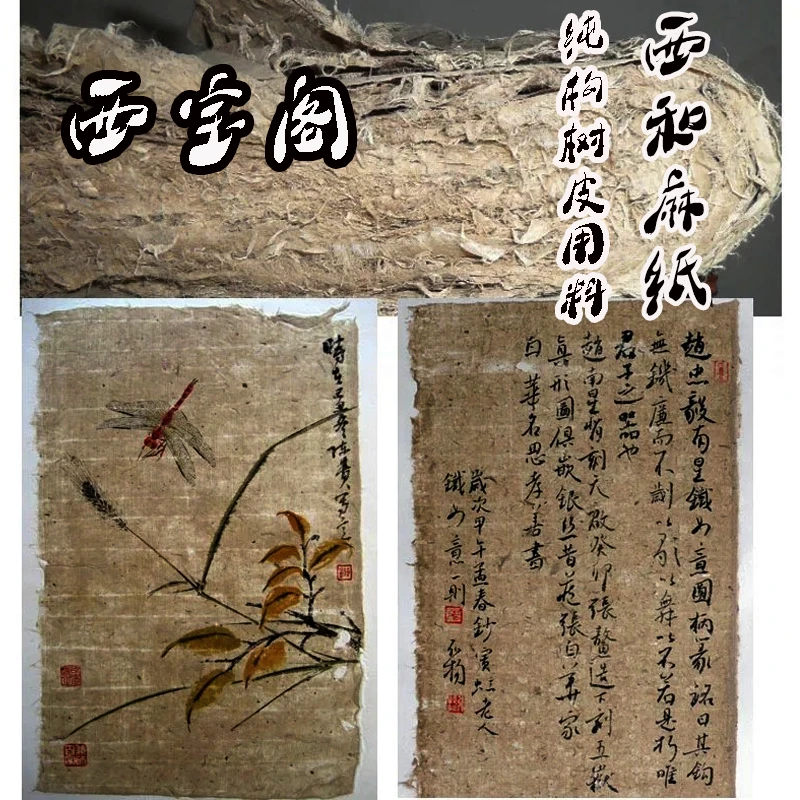 西宝阁
西和麻纸
纯构树皮用料
趙忠毅有星鐵如意圖柄篆銘曰其鈎
無鐖廉而不劌以歌以舞以不若是折唯
君子之器也
趙南星 刻天啟癸卯張鰲造下刻五嶽
真形圖俱嵌銀絲昔藏張伯華家
白華名思孝善書
歲次甲午孟春鈔賓虹老人
鐵如意一則